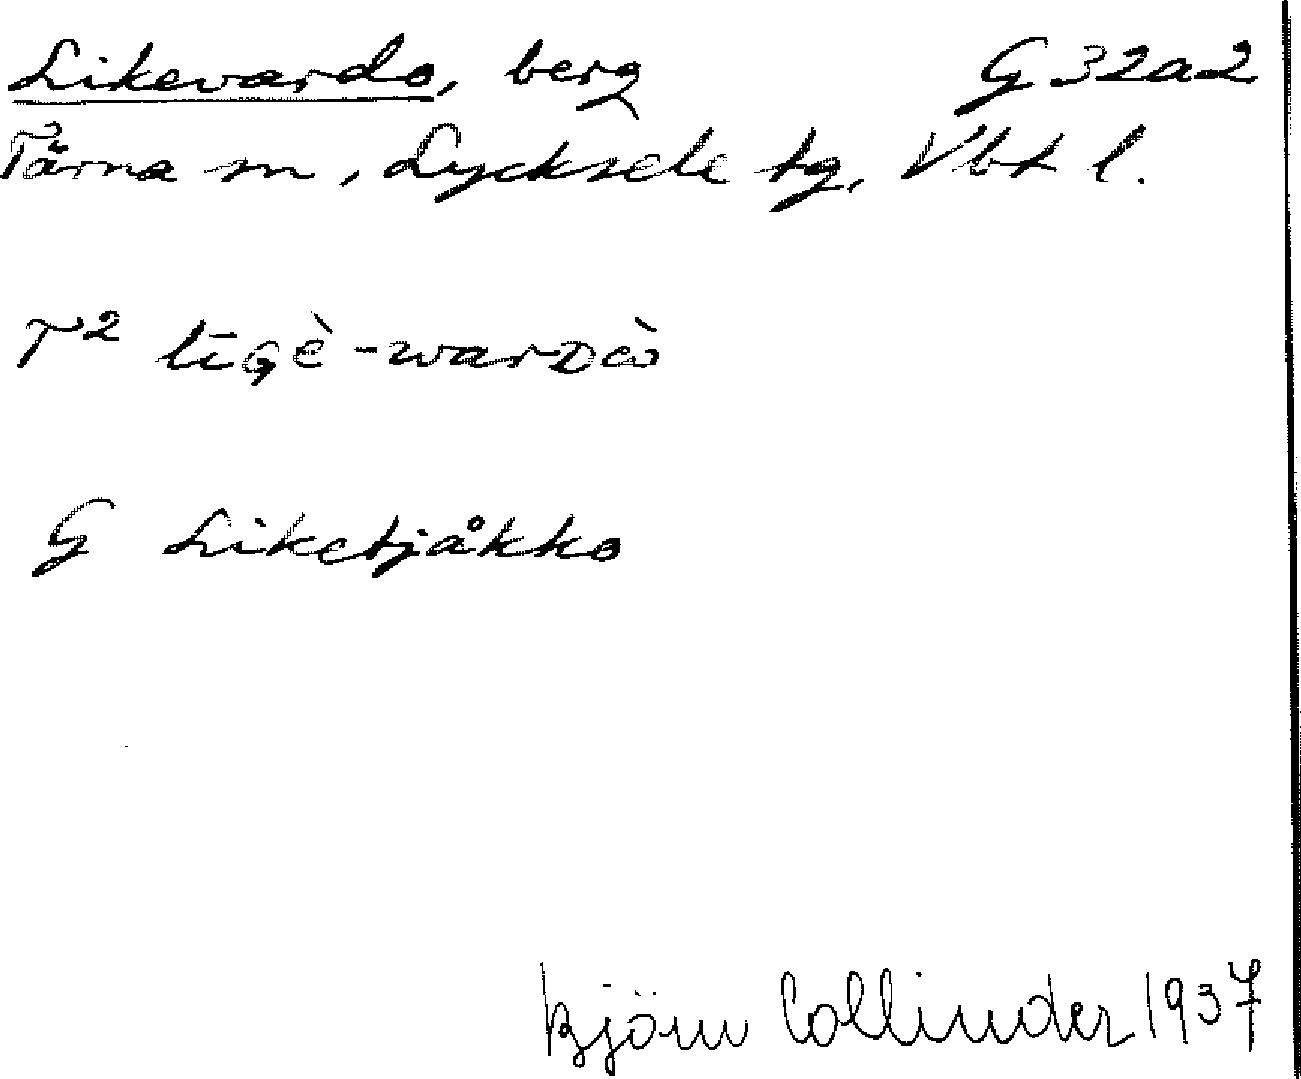 Likevardo, berg G 32a2
Tärna sn, Lycksele tg, Vbt l.
T² līGè-warDèω
G Liketjåkko
Björn Collinder 1937